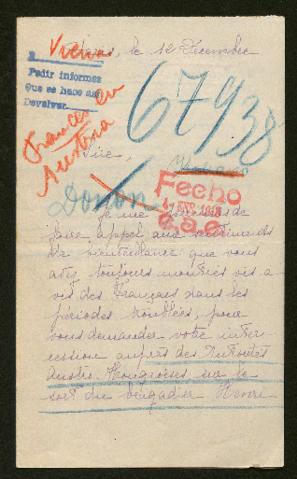 le 12 Décembre
R. Viena
Pedir informes
que se hace así
Devolver
67938
Francés en
Austria
Sire,
Donon
Fecho
je me
faire appel aux sentiments
de bienveillance que vous
avez toujours montrés vis à
vis des Français dans les
périodes troublées, pour
vous demander votre inter-
cession auprès des Autorités
Austro-Hongroises sur le
sort du brigadier